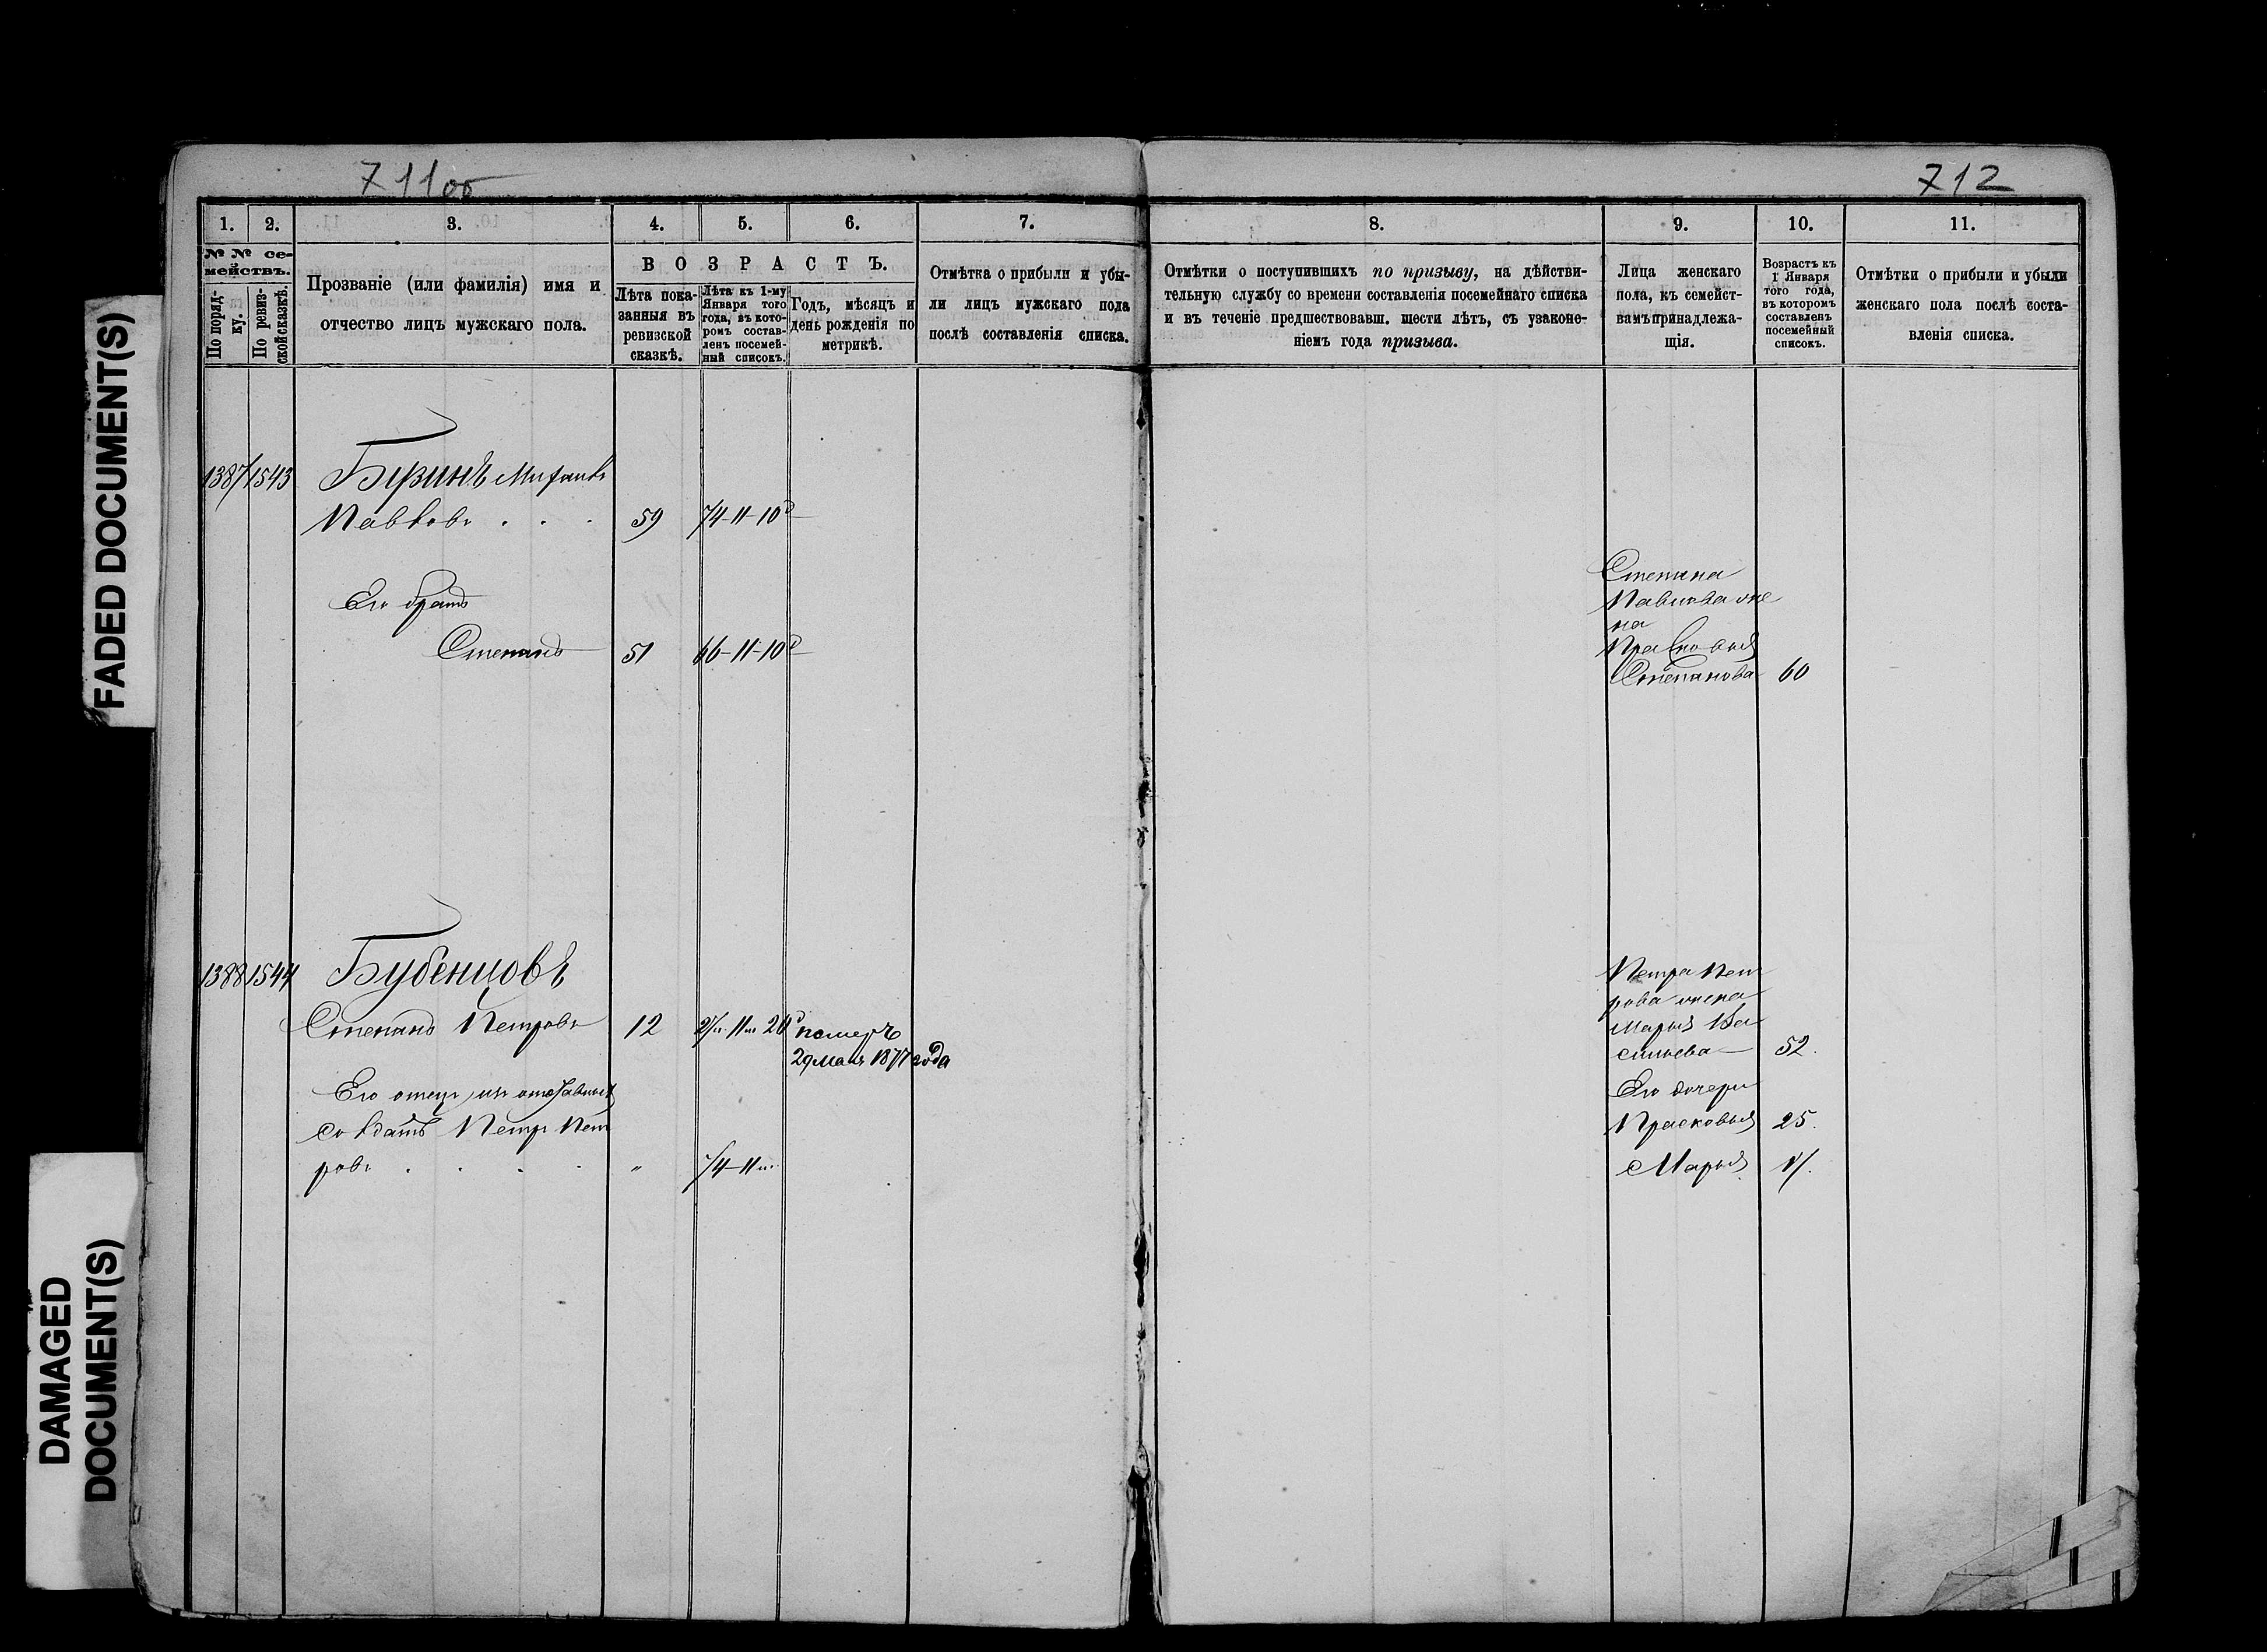 711об
712
1.
2.
3.
4.
5.
6.
7.
8.
9.
10.
11.
№ № се-
мействъ.
По поряд-
ку.
По ревиз-
ской сказкѣ.
Прозваніе (или фамилія) имя и
отчество лицъ мужскаго пола.
ВОЗРАСТЪ.
Лѣта пока-
занныя въ
ревизской
сказкѣ.
Лѣта къ 1-му
Января того
года, въ кото-
ромъ состав-
ленъ посемей-
ный списокъ.
Годъ, мѣсяцъ и
день рожденія по
метрикѣ.
Отмѣтка о прибыли и убы-
ли лицъ мужскаго пола
послѣ составленія списка.
Отмѣтки о поступившихъ по призыву, на дѣйстви-
тельную службу со времени составленія посемейнаго списка
и въ теченіе предшествовавш. шести лѣтъ, съ узаконе-
ніемъ года призыва.
Лица женскаго
пола, къ семейст-
вамъ принадлежа-
щія.
Возрастъ къ
1 Января
того года,
въ которомъ
составленъ
посемейный
списокъ.
Отмѣтки о прибыли и убыли
женскаго пола послѣ соста-
вленія списка.
1387 1543
Павловъ . . . 59 74-11-10д
Его братъ
Степанъ 51 66-11-10д
Степана
Павлова же
на
Прасковья
Степанова 60
1388 1544 Бубенцовъ
Степанъ Петровъ 12 померъ
29 Мая 1877 года
Его отецъ отставный
солдатъ Петръ Пет
ровъ . . . . " 74-11м.
Петра Пет
рова жена
Марья Ва
сильева 52.
Его дочери
Прасковья 25.
Марья
FADED DOCUMENT(S)
DAMAGED
DOCUMENT(S)